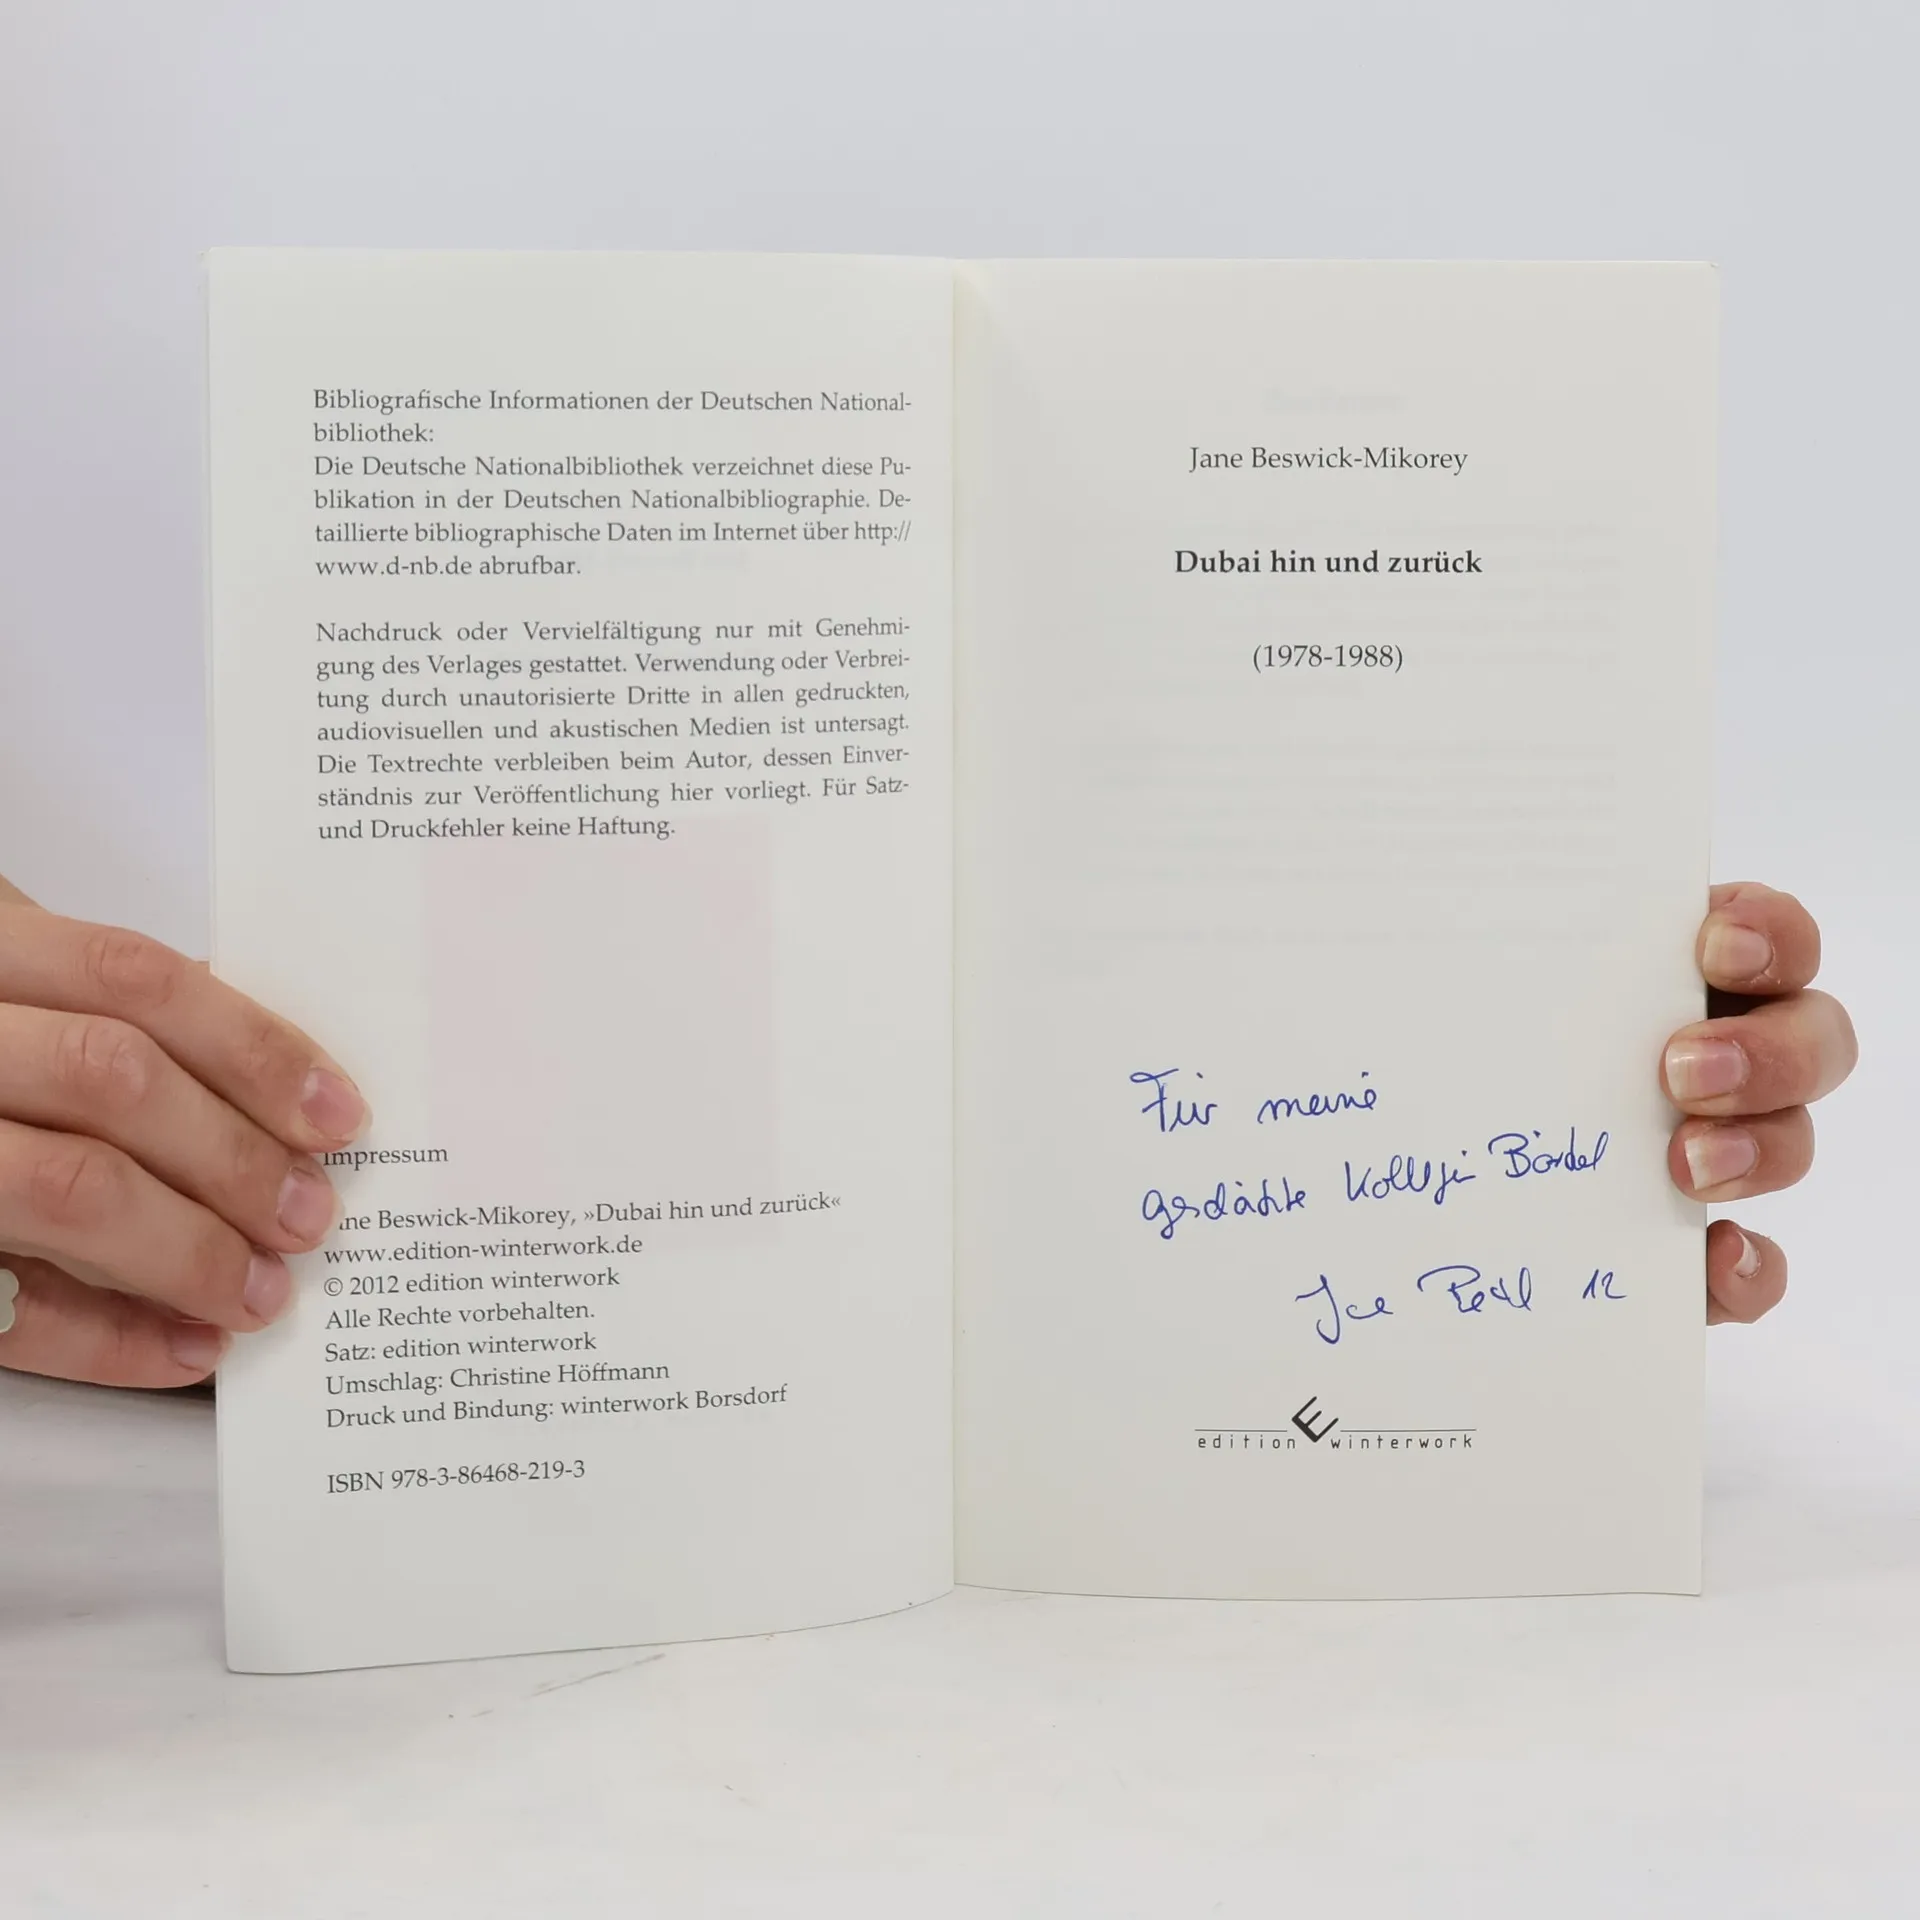 Bibliografische Informationen der Deutschen National-
bibliothek:
Die Deutsche Nationalbibliothek verzeichnet diese Pu-
blikation in der Deutschen Nationalbibliographie. De-
taillierte bibliographische Daten im Internet über http://
www.d-nb.de abrufbar.
Nachdruck oder Vervielfältigung nur mit Genehmi-
gung des Verlages gestattet. Verwendung oder Verbrei-
tung durch unautorisierte Dritte in allen gedruckten,
audiovisuellen und akustischen Medien ist untersagt.
Die Textrechte verbleiben beim Autor, dessen Einver-
ständnis zur Veröffentlichung hier vorliegt. Für Satz-
und Druckfehler keine Haftung.
Impressum
ane Beswick-Mikorey, »Dubai hin und zurück«
www.edition-winterwork.de
© 2012 edition winterwork
Alle Rechte vorbehalten.
Satz: edition winterwork
Umschlag: Christine Höffmann
Druck und Bindung: winterwork Borsdorf
ISBN 978-3-86468-219-3
Jane Beswick-Mikorey
Dubai hin und zurück
(1978-1988)
Für meine
Kollegin
12
edition E winterwork